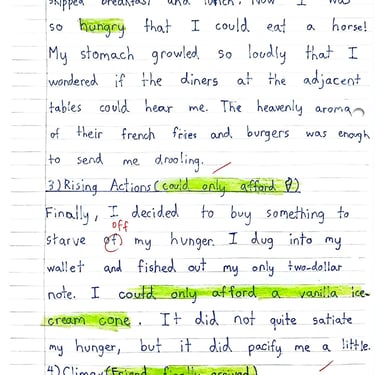 skipped breakfast and lunch. Now I was
so hungry that I could eat a horse!
My stomach growled so loudly that I
wondered if the diners at the adjacent
tables could hear me. The heavenly aroma
of their french fries and burgers was enough
to send me drooling.
3) Rising Actions (could only afford
Finally, I decided to buy something to
off
starve of my hunger. I dug into my
wallet and fished out my only two-dollar
note. I could only afford a vanilla ice-
cream cone. It did not quite satiate
my hunger, but it did pacify me a little.
4) Climax (Friend finally arrived)